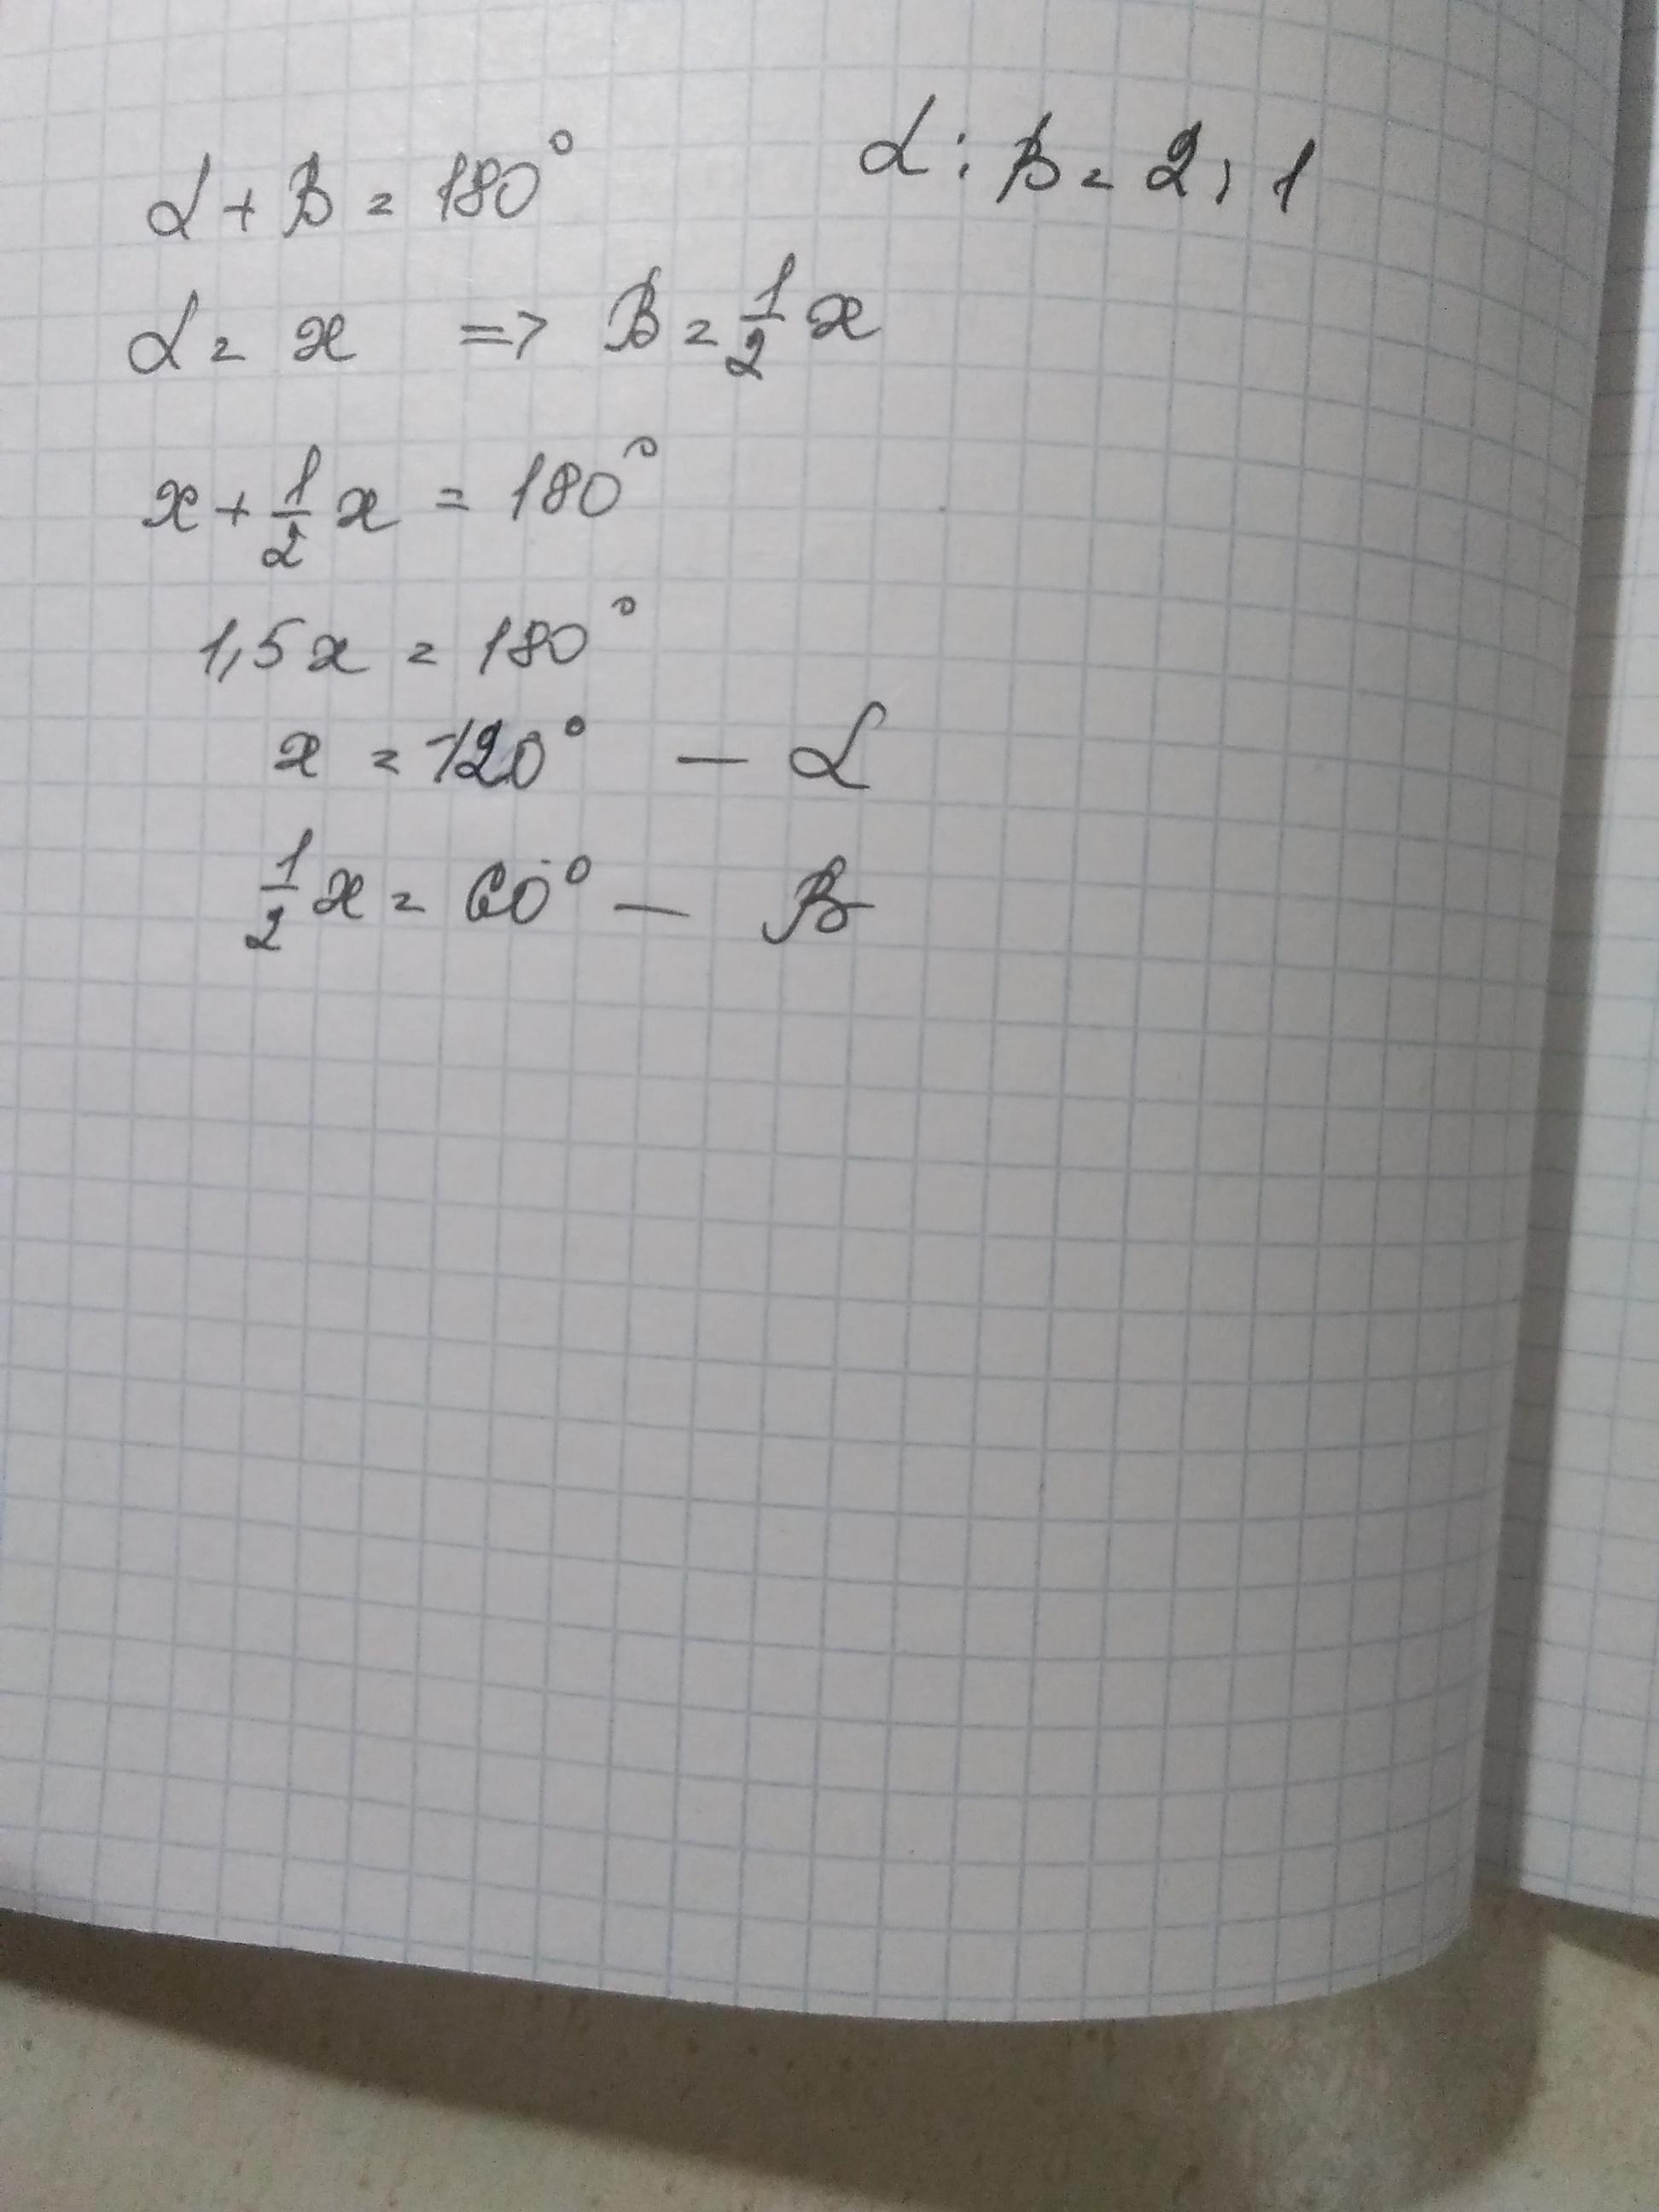 α + β = 180°   α : β = 2 : 1
α = x => β = 1/2 x
x + 1/2 x = 180°
1,5x = 180°
x = 120° — α
1/2 x = 60° — β